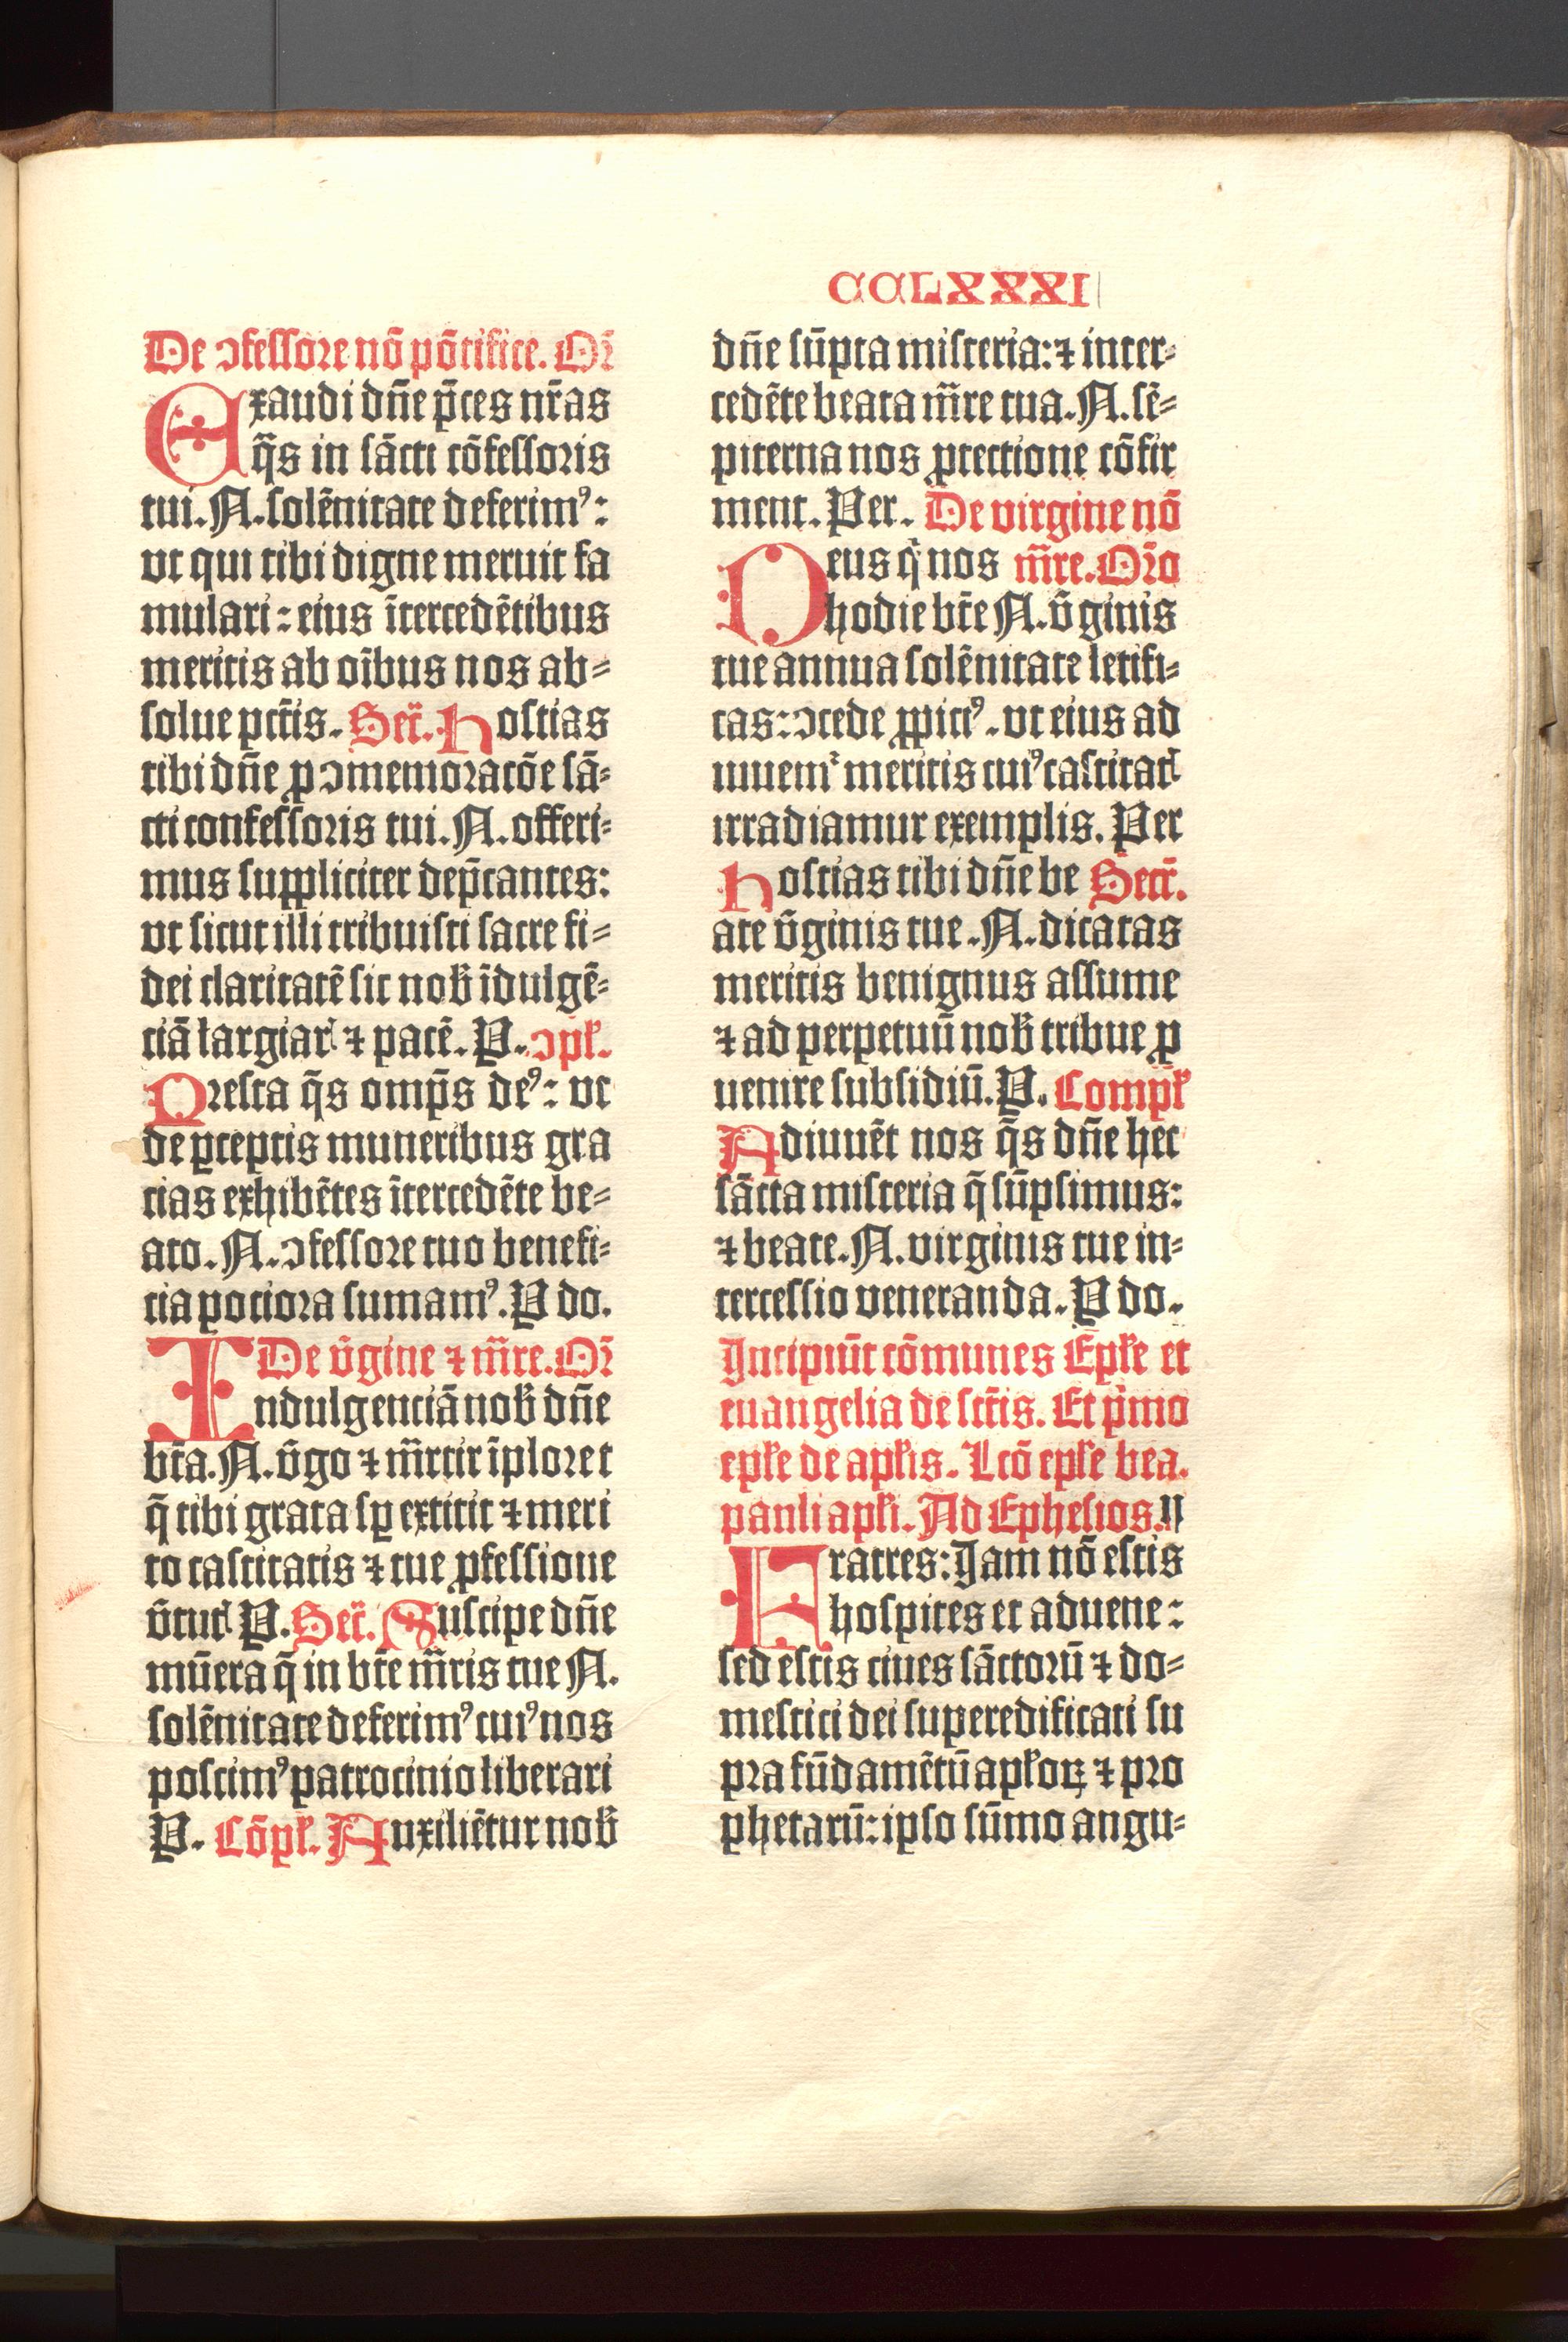 CCLXXXI
De ɔfessore nō pōtifice. Or̄
Exaudi dn̄e p̄ces nr̄as
q̄s in sācti cōfessoris
tui. N. solēnitate deferimꝰ:
vt qui tibi digne meruit fa
mulari: eius ītercedētibus
meritis ab oībus nos ab⸗
solue pctīs. Secr̄. Hostias
tibi dn̄e ꝓ ɔmemoracōe sā⸗
cti confessoris tui. N. offeri⸗
mus suppliciter dep̄cantes:
vt sicut illi tribuisti sacre fi⸗
dei claritatē sic nob̄ īdulgē⸗
ciā largiarꝭ ⁊ pacē. P. ɔpl̄.
Presta q̄s omp̄s deꝰ: vt
de ꝑceptis muneribus gra
cias exhibētes ītercedēte be⸗
ato. N. ɔfessore tuo benefi⸗
cia pociora sumamꝰ. P do.
De v̄gine ⁊ mr̄e. Or̄
Indulgenciā nob̄ dn̄e
bt̄a. N. v̄go ⁊ mr̄tir īploret
q̄ tibi grata sꝑ extitit ⁊ meri
to castitatis ⁊ tue ꝓfessione
v̄tutꝭ P. Secr̄. Suscipe dn̄e
mūera q̄ in bt̄e mr̄ris tue N.
solēnitate deferimꝰ cuiꝰ nos
poscimꝰ patrocinio liberari
P. Cōpl̄. Auxiliētur nob̄
dn̄e sūpta misteria: ⁊ inter⸗
cedēte beata mr̄re tua. N. sē⸗
piterna nos ꝓtectione cōfir
ment. Per. De virgine nō
Deus q̇ nos mr̄re. Or̄o
hodie bt̄e N. v̄ginis
tue annua solēnitate letifi⸗
cas: ɔcede ꝓpiciꝰ. vt eius ad
iuuemr̄ meritis cuiꝰ castitatꝭ
irradiamur exemplis. Per
Hostias tibi dn̄e be Secr̄.
ate v̄ginis tue. N. dicatas
meritis benignus assume
⁊ ad perpetuū nob̄ tribue ꝓ
uenire subsidiū. P. Compl̄
Adiuuēt nos q̄s dn̄e hec
sācta misteria q̄ sūpsimus:
⁊ beate. N. virginis tue in⸗
tercessio veneranda. P do.
Incipiūt cōmunes Epl̄e et
euangelia de sctīs. Et p̄mo
epl̄e de apl̄is. Lcō epl̄e bea.
pauli apl̄i. Ad Ephesios. II
Fratres: Jam nō estis
hospites et aduene:
sed estis ciues sāctorū ⁊ do⸗
mestici dei superedificati su
pra fūdamētū apl̄oꝝ ⁊ pro
phetarū: ipso sūmo angu⸗